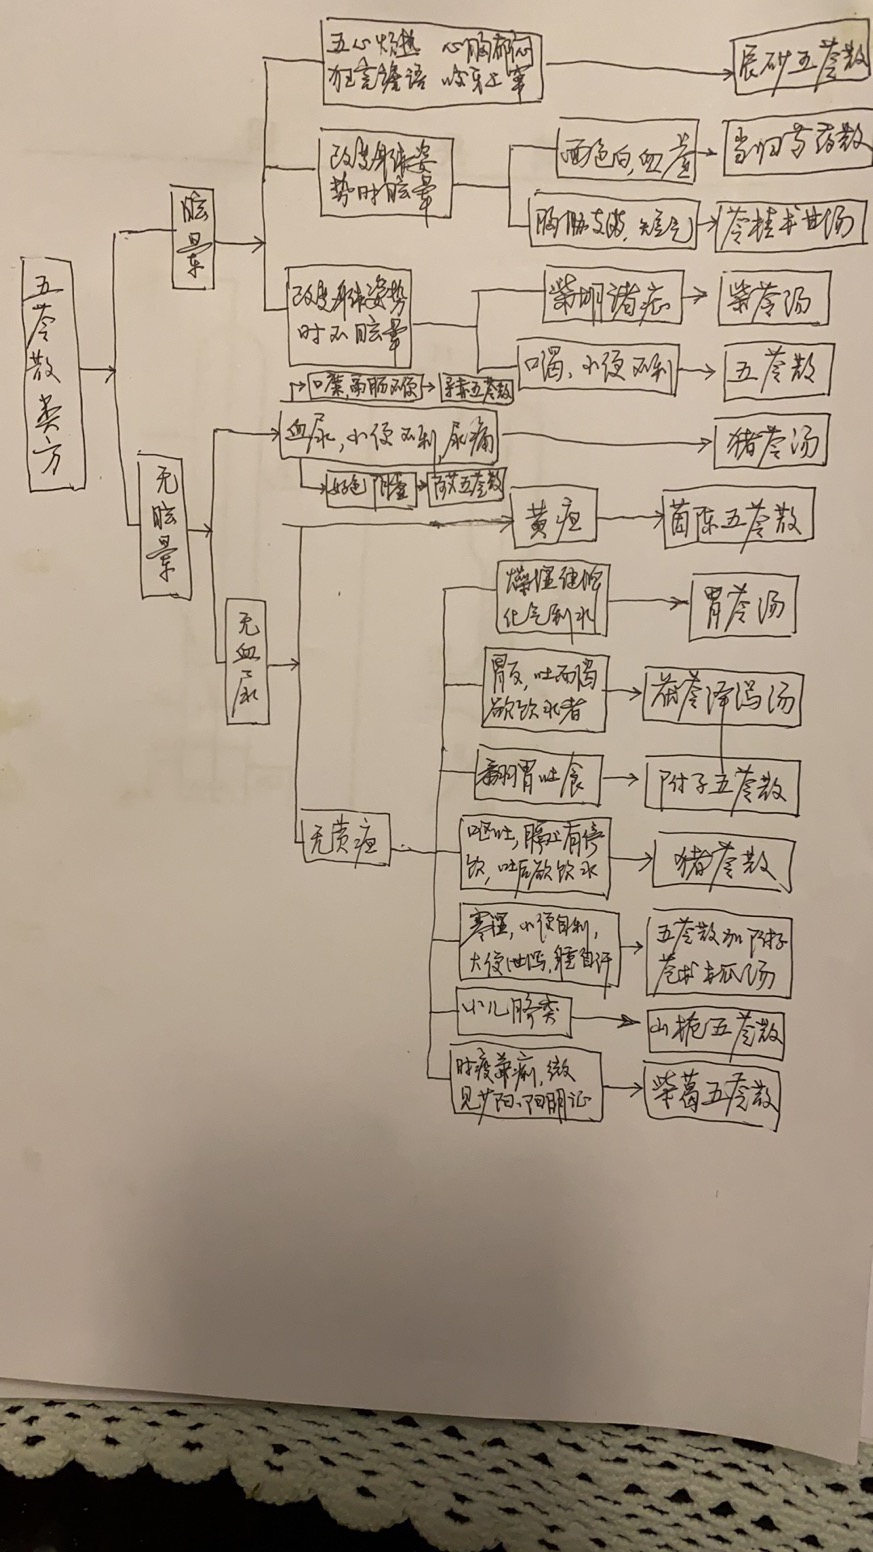 五苓散类方
眩晕
五心烦热 心胸郁闷
狂言谵语 咬牙上窜
辰砂五苓散
改变身体姿
势时眩晕
面色白,血虚
当归芍药散
胸胁支满,短气
苓桂术甘汤
改变身体姿势
时不眩晕
柴胡诸症
柴苓汤
口渴,小便不利
五苓散
无眩晕
五苓散
血尿,小便不利,尿痛
猪苓汤
五苓散
无血尿
黄疸
茵陈五苓散
无黄疸
燥湿
化气利水
胃苓汤
胃反,吐而渴
欲饮水者
茯苓泽泻汤
翻胃吐食
附子五苓散
呕吐,膈上有停
饮,吐后欲饮水
猪苓散
寒湿,小便自利,
大便泄泻,自汗
五苓散加附子
苍术木瓜汤
小儿
山栀五苓散
时疫,微
见少阳、阳明证
柴葛五苓散